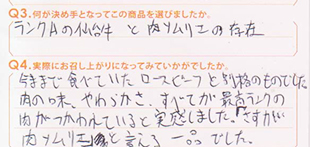 Q3.何が決め手となってこの商品を選びましたか。
ランクAの仙台牛 と 肉ソムリエ の 存在
Q4.実際にお召し上がりになってみていかがでしたか。
今まで食べていた ロースビーフと 別格のものでした
肉の味、やわらかさ、すべてが 最高ランクの
肉がつかわれていると 実感しました。さすが
肉ソムリエ と 言える 一品 でした。